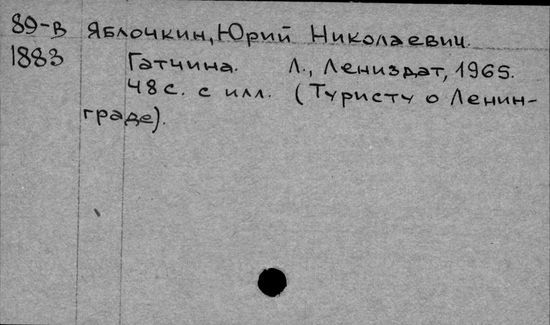 89-в Яблочкин, Юрий Николаевич.
1883 Гатчина. Л., Лениздат, 1965.
48 с. с илл. (Туристу о Ленин-
граде).